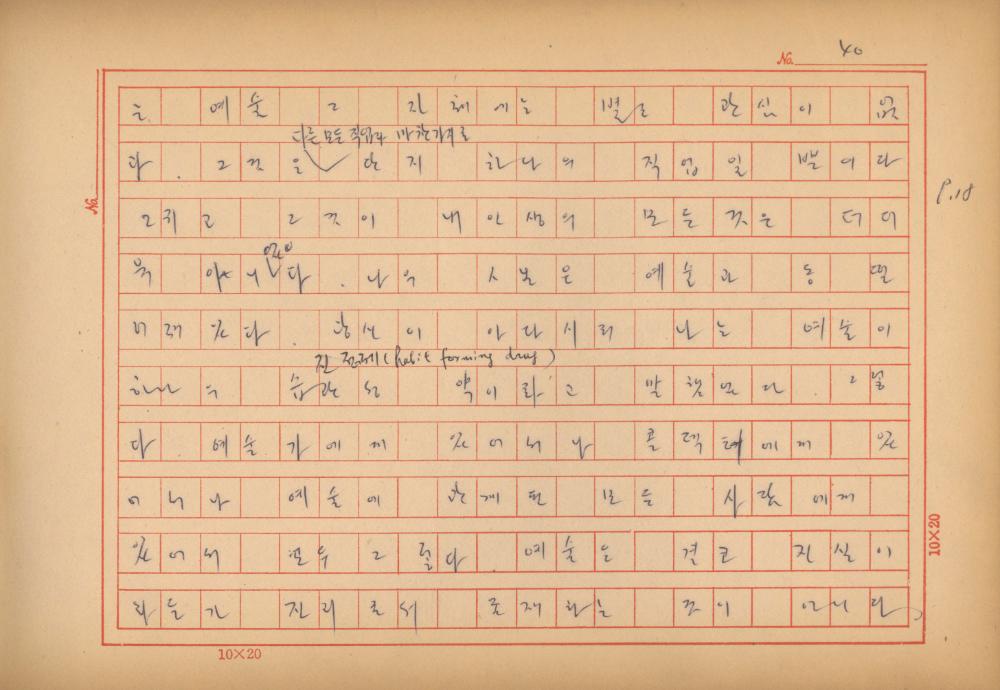 No. 40
는 예술 그 자체에는 별로 관심이 없
다른 모든 직업과 마찬가지로
다. 그것은 단지 하나의 직업일 뿐이다
그리고 그것이 내 인생의 모든 것은 더더
P.18
No.
욱 아니다. 나의 시보은 예술과 동떨
어져 있다. 당신이 아다시피 나는 예술이
진정제(habit forming drug)
하나의 습관성 약이라고 말했었다. 그렇
다. 예술가에게 있어서나 콜렉터에게 있
어서나 예술에 관계된 모든 사람에게
있어서 모두 그렇다. 예술은 결코 진실이
라든가 진리로서 존재하는 것이 아니다,
10×20
10×20